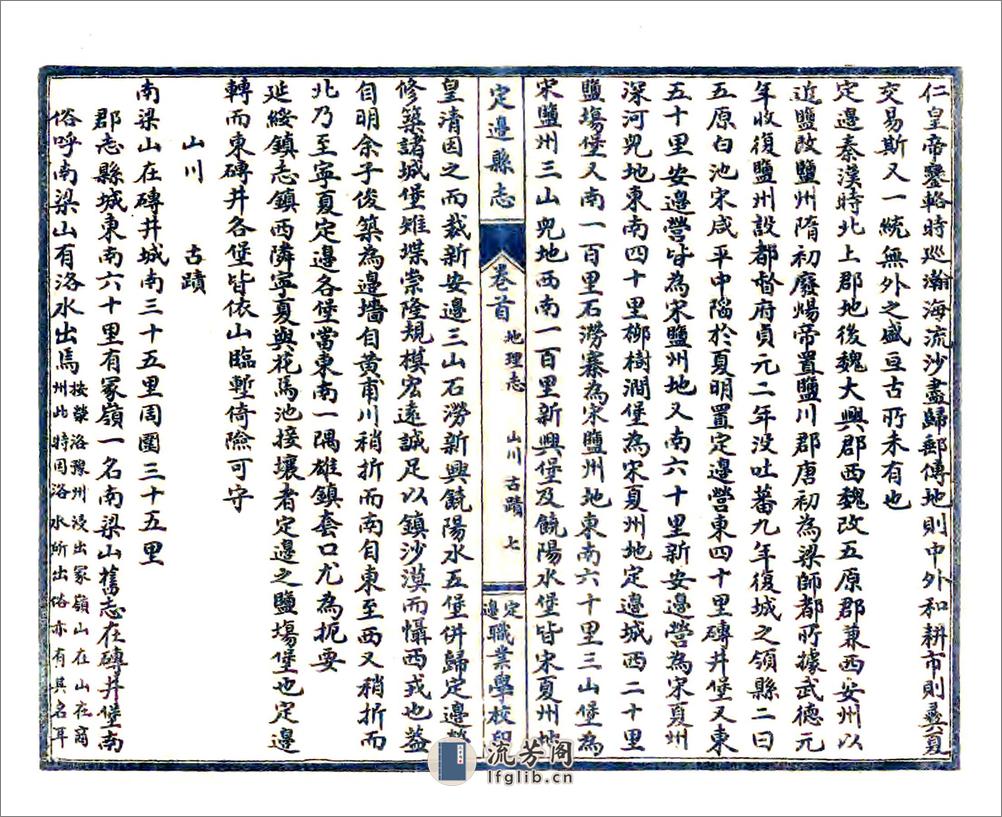 仁皇帝鑾輅時巡瀚海流沙盡歸郵傳地則中外和耕市則彞夏
交易斯又一統無外之盛亘古所未有也
定邊秦漢時北上郡地後魏大興郡西魏改五原郡兼西安州以
近鹽改鹽州隋初廢煬帝置鹽川郡唐初為梁師都所據武德元
年收復鹽州設都督府貞元二年没吐蕃九年復城之領縣二曰
五原白池宋咸平中陷於夏明置定邊營東四十里磚井堡又東
五十里安邊營皆為宋鹽州地又南六十里新安邊營為宋夏州
深河兒地東南四十里柳樹澗堡為宋夏州地定邊城西二十里
鹽塲堡又南一百里石澇寨為宋鹽州地東南六十里三山堡為
宋鹽州三山兒地西南一百里新興堡及饒陽水堡皆宋夏州地
定邊縣志 卷首 地理志 山川 古蹟 七 定邊職業學校印
皇清因之而裁新安邊三山石澇新興饒陽水五堡併歸定邊營
修築諸城堡雉堞崇隆規模宏遠誠足以鎮沙漠而懾西戎也蓋
自明余子俊築為邊墻自黃甫川稍折而南自東至西又稍折而
北乃至寧夏定邊各堡當東南一隅雄鎮套口尤為扼要
延綏鎮志鎮西隣寧夏與花馬池接壤者定邊之鹽塲堡也定邊
轉而東磚井各堡皆依山臨塹倚險可守
山川 古蹟
南梁山在磚井城南三十五里周圍三十五里
郡志縣城東南六十里有冢嶺一名南梁山舊志在磚井堡南
俗呼南梁山有洛水出焉按滎洛豫州浸出冢嶺山在山在商
州此時因洛水所出俗亦有其名耳
流芳阁
lfglib.cn